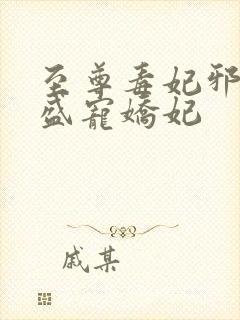 至尊毒妃邪
盛寵嬌妃
戚某